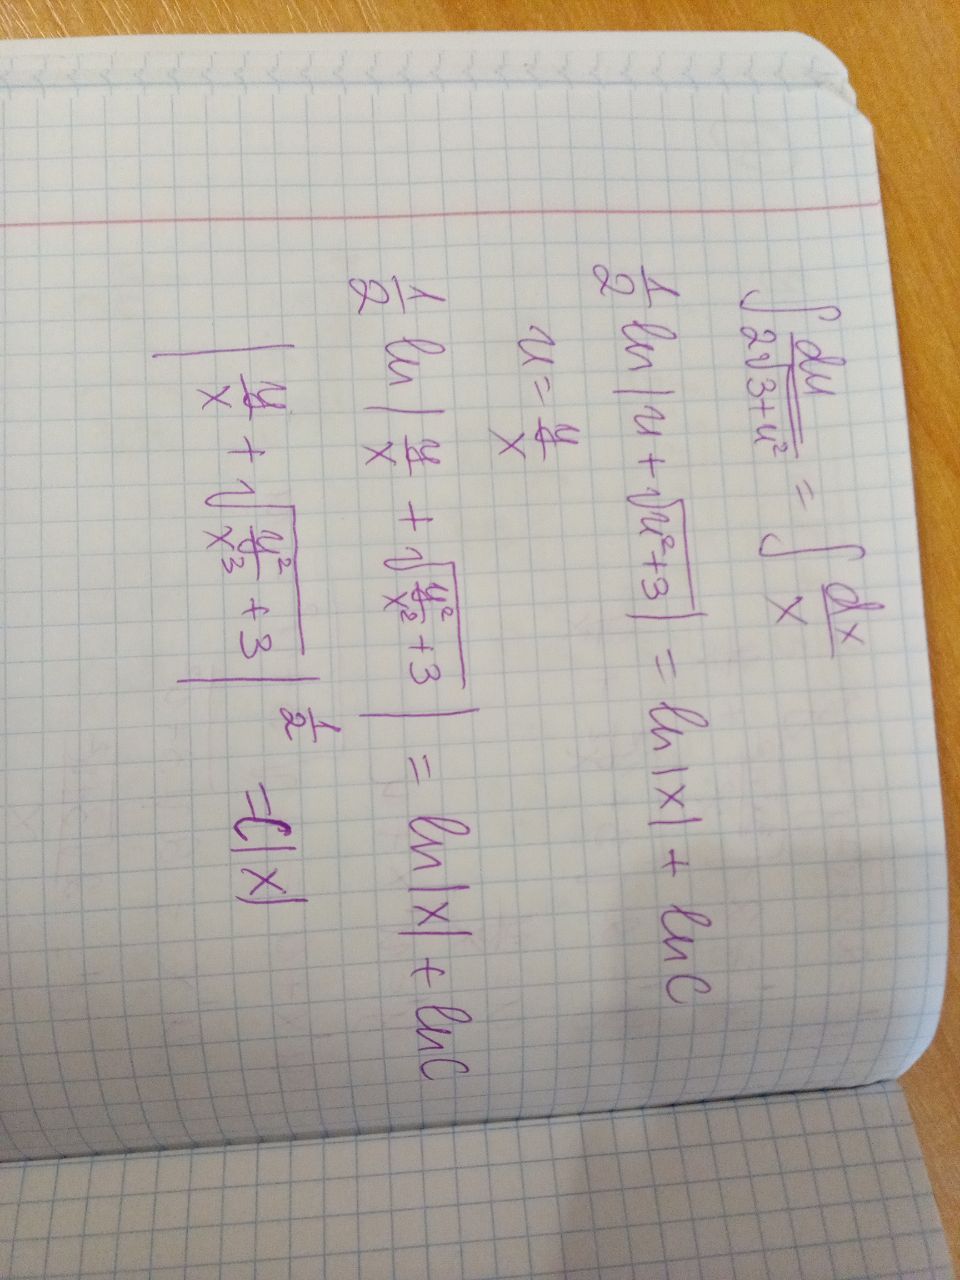 ∫ du / 2√(3+u²) = ∫ dx / x
1/2 ln |u + √(u²+3)| = ln |x| + ln C
u = y/x
1/2 ln | y/x + √(y²/x² + 3) | = ln |x| + ln C
| y/x + √(y²/x³ + 3) |^(1/2) = C|x|